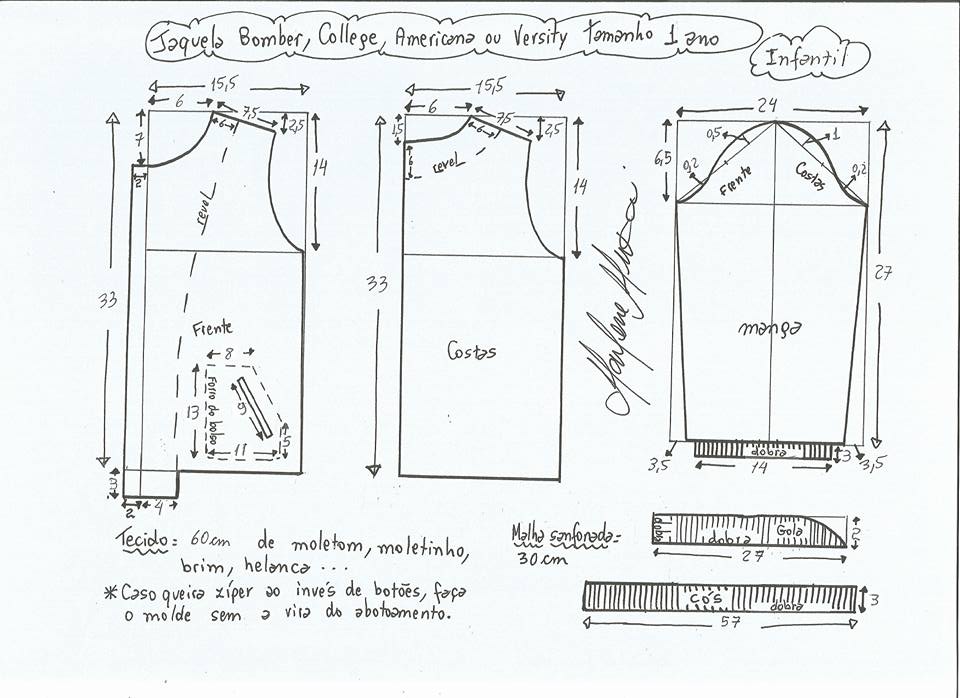 Jaqueta Bomber, College, Americana ou Versity Tamanho 1 ano
Infantil
15,5
6
7,5
6
2,5
7
2
14
revel
33
Frente
8
13
Forro do bolso
9
5
11
3
2
4
15,5
6
7,5
6
2,5
1,5
6
revel
14
33
Costas
24
0,5
1
6,5
0,2
0,2
Frente
Costas
27
manga
3,5
dobra
3
14
3,5
Tecido: 60cm de moletom, moletinho,
brim, helanca ...
*Caso queira zíper ao invés de botões, faça
o molde sem a vira do abotoamento.
Malha sanfonada:
30cm
dobra
dobra
Gola
2
27
Cós
dobra
3
57